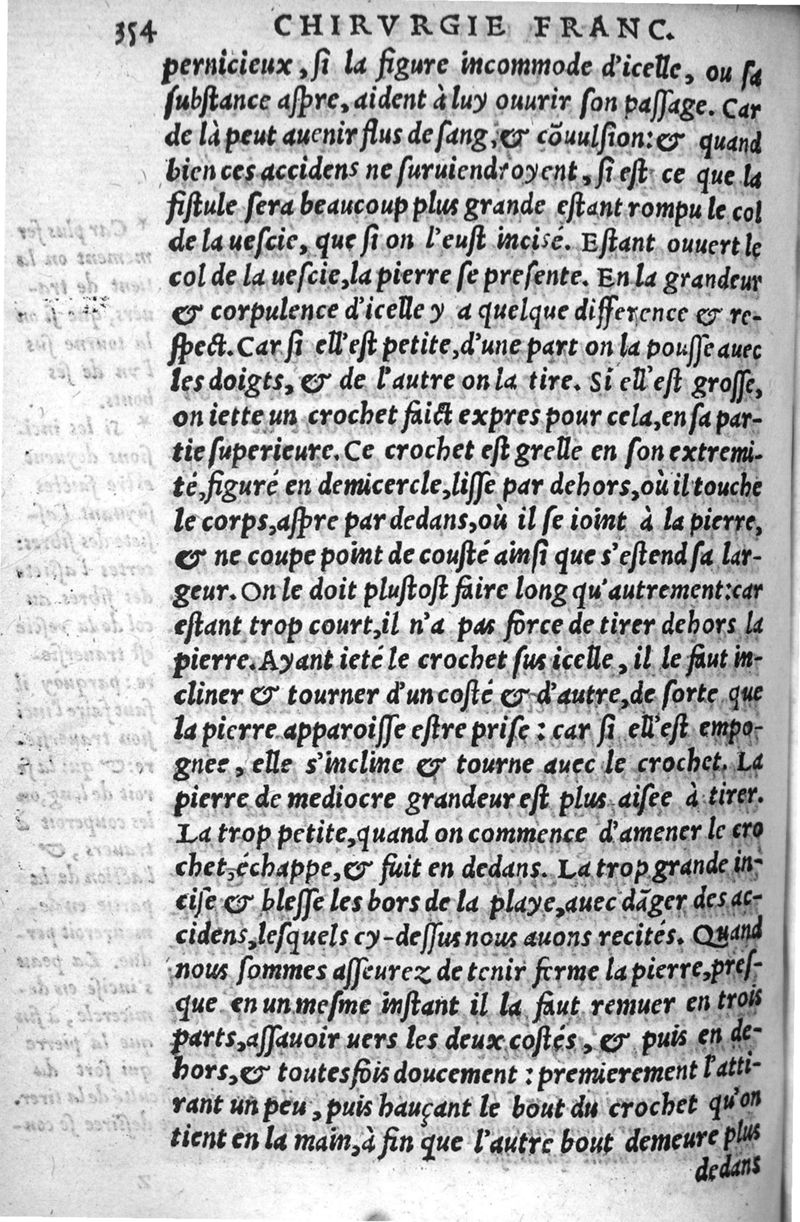 354 CHIRVRGIE FRANC.
pernicieux, ſi la figure incommode d'icelle, ou ſa
ſubſtance aſpre, aident à luy ouurir ſon paſſage. Car
de là peut auenir flus de ſang, & cõuulſion: & quand
bien ces accidens ne ſuruiendroyent, ſi eſt ce que la
fiſtule ſera beaucoup plus grande eſtant rompu le col
de la ueſcie, que ſi on l'euſt inciſé. Eſtant ouuert le
col de la ueſcie, la pierre ſe preſente. En la grandeur
& corpulence d'icelle y a quelque difference & re-
ſpect. Car ſi ell'eſt petite, d'une part on la pouſſe auec
les doigts, & de l'autre on la tire. Si ell'eſt groſſe,
on iette un crochet faict expres pour cela, en ſa par-
tie ſuperieure. Ce crochet eſt grelle en ſon extremi-
té, figuré en demicercle, liſſe par dehors, où il touche
le corps, aſpre par dedans, où il ſe ioint à la pierre,
& ne coupe point de couſté ainſi que s'eſtend ſa lar-
geur. On le doit pluſtoſt faire long qu'autrement: car
eſtant trop court, il n'a pas force de tirer dehors la
pierre. Ayant ieté le crochet ſus icelle, il le faut in-
cliner & tourner d'un coſté & d'autre, de ſorte que
la pierre apparoiſſe eſtre priſe : car ſi ell'eſt empo-
gnee, elle s'incline & tourne auec le crochet. La
pierre de mediocre grandeur eſt plus aiſee à tirer.
La trop petite, quand on commence d'amener le cro
chet, échappe, & fuit en dedans. La trop grande in-
ciſe & bleſſe les bors de la playe, auec dãger des ac-
cidens, leſquels cy-deſſus nous auons recités. Quand
nous ſommes aſſeurez de tenir ferme la pierre, preſ-
que en un meſme inſtant il la faut remuer en trois
parts, aſſauoir uers les deux coſtés, & puis en de-
hors, & toutesfois doucement : premierement l'atti-
rant un peu, puis hauçant le bout du crochet qu'on
tient en la main, à fin que l'autre bout demeure plus
dedans